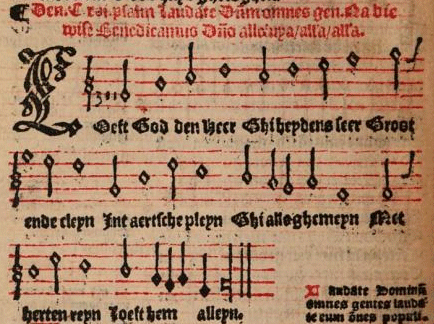 Den. C xvi. psalm Laudate Dñm omnes gen. Na die
wise Benedicamus Dño alleluya/alla/alla.
Loeft God den Heer Ghi heydens seer Groot
ende cleyn Int aertsche pleyn Ghi alle ghemeyn Met
herten reyn Loeft hem alleyn.
Laudate Dominũ
omnes gentes lauda
te eum õnes populi.